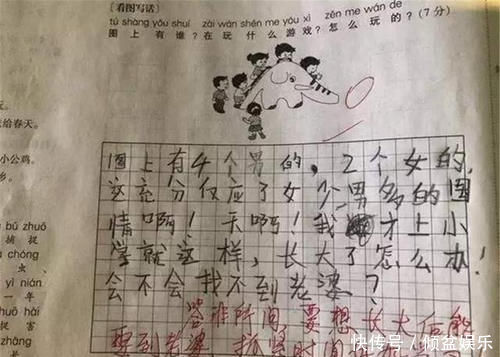 ［看图写话］
tú shàng yǒu shuí zài wán shén me yóu xì zěn me wán de
图上有谁？在玩什么游戏？怎么玩的？(7分)
给春天。
小公鸡。
乡。
bǔ zhuō
捕捉
chóng
虫、
yì nián
一年
huó hài
图上有4个男的，2个女的，
这充分仅应了女少男多的国
情啊！天啊！我才上小
学就这样，长大了怎么办！
会不会找不到老婆？
答非所问，要想长大后能
要到老婆，抓紧时间
快传号/倾盆娱乐